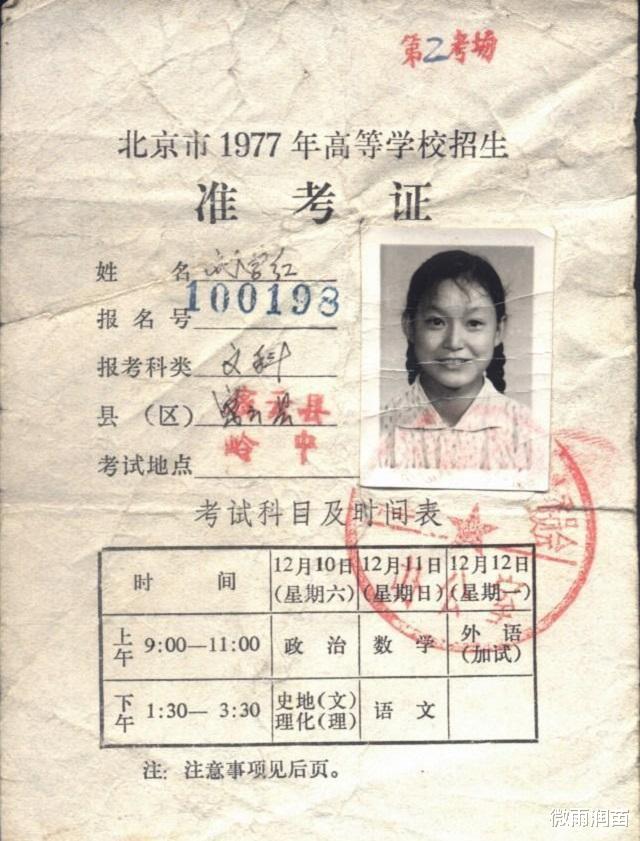 第2考场
北京市1977年高等学校招生
准考证
姓名 红
报名号 100198
报考科类 文科
县(区) 密云县
考试地点 岭中
考试科目及时间表
时间 12月10日(星期六) 12月11日(星期日) 12月12日(星期一)
上午 9:00—11:00 政治 数学 外语(加试)
下午 1:30—3:30 史地(文)理化(理) 语文
注:注意事项见后页。
微雨润苗